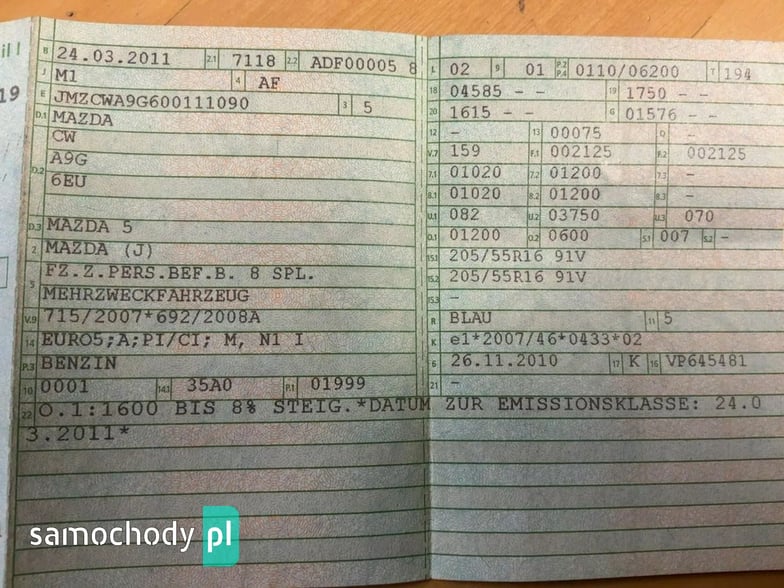 il I
19
B 24.03.2011 2.1 7118 2.2 ADF00005 8
J M1 4 AF
E JMZCWA9G600111090 3 5
D.1 MAZDA
D.2 CW
A9G
6EU
D.3 MAZDA 5
2 MAZDA (J)
5 FZ.Z.PERS.BEF.B. 8 SPL.
MEHRZWECKFAHRZEUG
V.9 715/2007*692/2008A
14 EURO5;A;PI/CI; M, N1 I
P.3 BENZIN
10 0001 14.1 35A0 P.1 01999
L 02 9 01 P.2 P.4 0110/06200 T 194
18 04585 - - 19 1750 - -
20 1615 - - G 01576 - -
12 - 13 00075 Q -
V.7 159 F.1 002125 F.2 002125
7.1 01020 7.2 01200 7.3 -
8.1 01020 8.2 01200 8.3 -
U.1 082 U.2 03750 U.3 070
O.1 01200 O.2 0600 S.1 007 S.2 -
15.1 205/55R16 91V
15.2 205/55R16 91V
15.3 -
R BLAU 11 5
K e1*2007/46*0433*02
6 26.11.2010 17 K 16 VP645481
21 -
22 O.1:1600 BIS 8% STEIG.*DATUM ZUR EMISSIONSKLASSE: 24.0
3.2011*
samochody pl